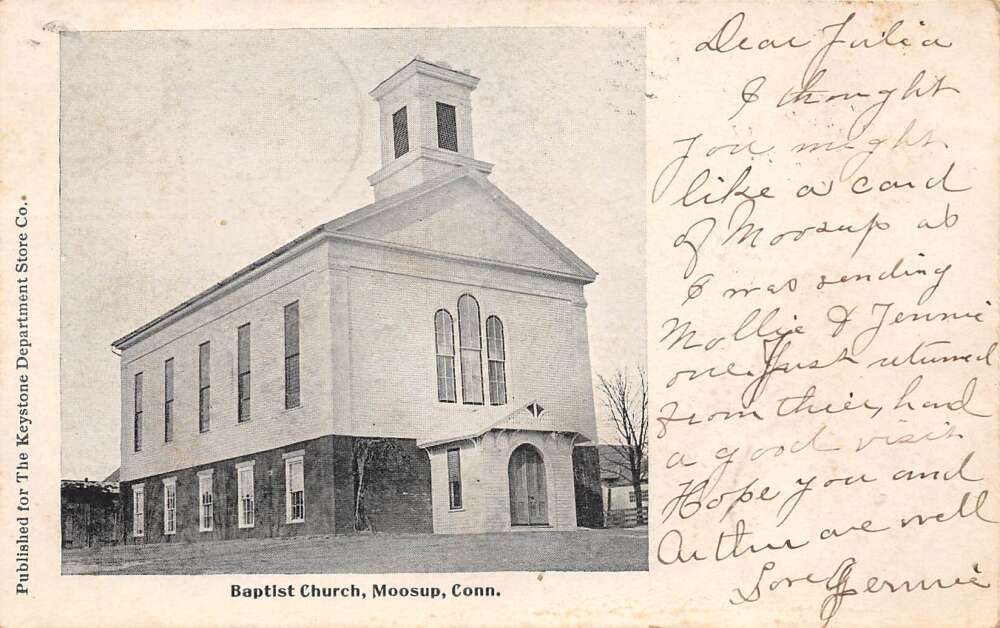 Published for The Keystone Department Store Co.
Baptist Church, Moosup, Conn.
Dear Julia
I thought
you might
like a card
of Moosup as
I was sending
Mollie & Jennie
one. Just returned
from their, had
a good visit
Hope you and
Arthur are well
Love